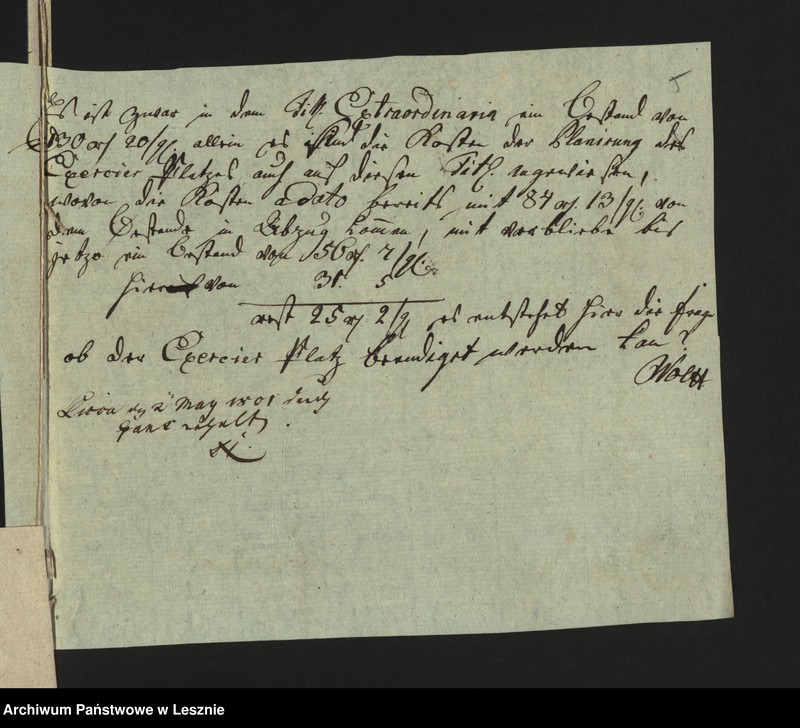 5
Es ist zwar in dem Tit. Extraordinaria ein Bestand von
130 rt 20 gl. allein es sind die Kosten der Planirung des
Exercier Platzes auch auf diesen Tit. angewiesen,
wovon die Kosten a dato bereits mit 84 rt. 13 gl. von
dem Bestande in Abzug kommen, mit verbliebe bis
jetzo ein Bestand von 56 rt. 7 gl.
hier von 31. 5
rest 25 rt 2 gl es entstehet hier die frage
ob der Exercier Platz beendiget werden kan?
Wolff
Lissa 2 May 1801
Archiwum Państwowe w Lesznie